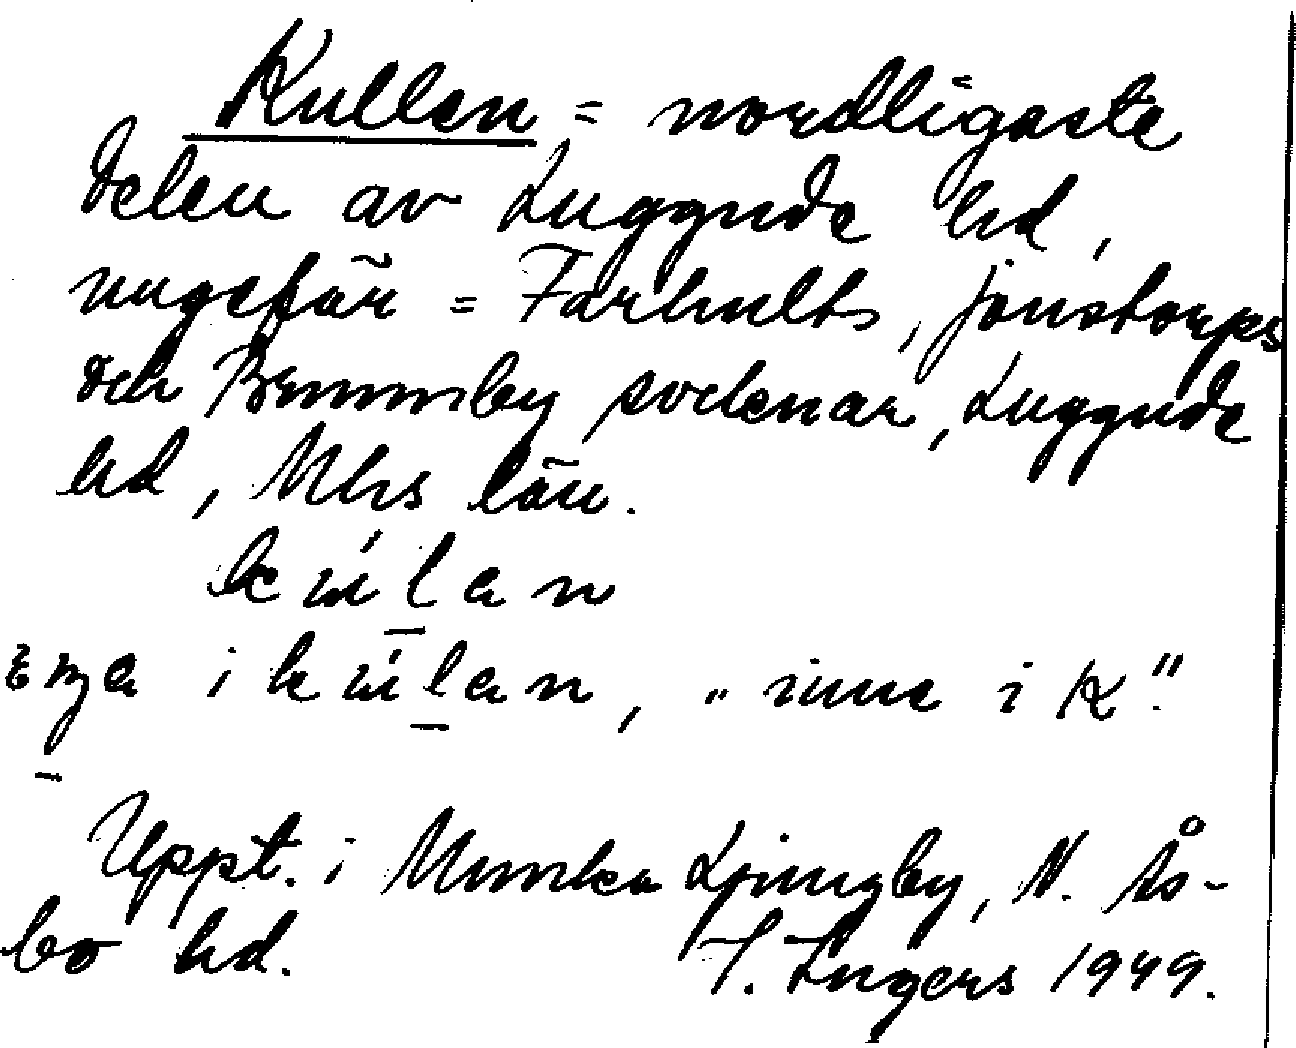 Kullen = nordligaste
delen av Luggude hd,
ungefär = Farhults, Jonstorps
och Brunnby socknar, Luggude
hd, Mhs län.
i
, "inne i K".
Uppt. i Munka Ljungby, N. Ås-
bo hd. I. Ingers 1949.